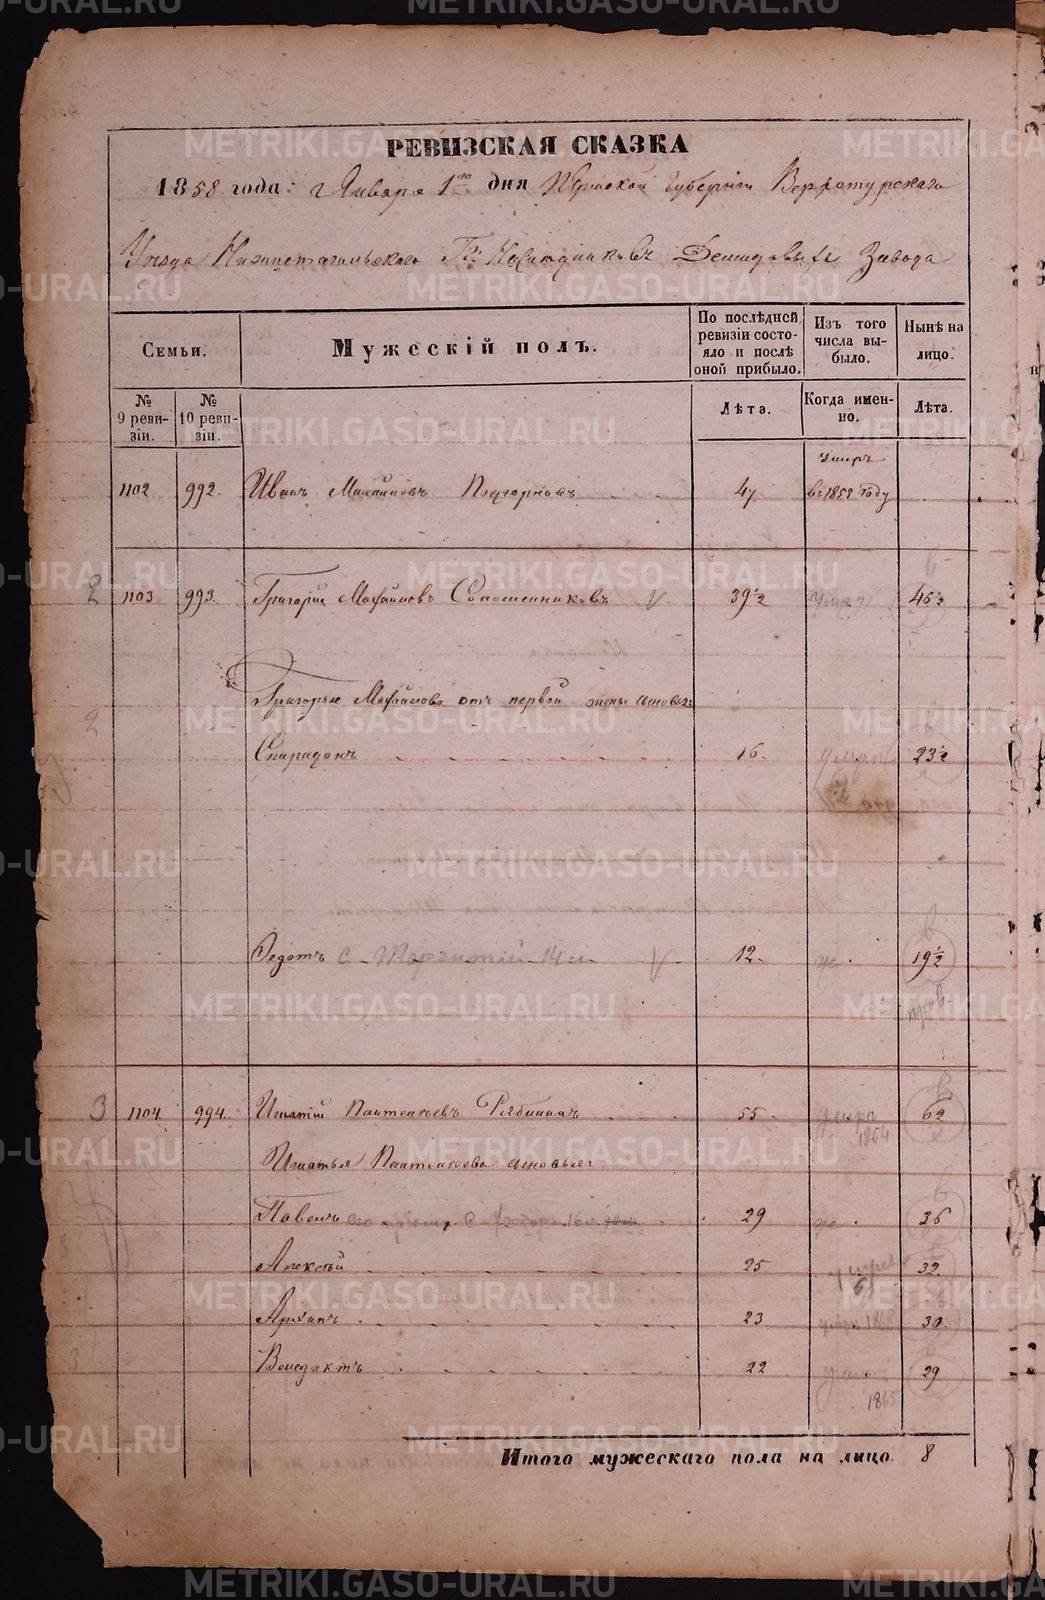 METRIKI.GASO-URAL.RU
РЕВИЗСКАЯ СКАЗКА
1858 года: г Января 1го дня Пермской Губернiи Верхотурскаго
Уѣзда Нижнетагильскаго Гг. Наслѣдниковъ Демидовыхъ Завода
Семьи.
Мужескiй полъ.
По послѣдней ревизiи состояло и послѣ оной прибыло.
Изъ того числа выбыло.
Нынѣ на лицо.
№ 9 ревизiи.
№ 10 ревизiи.
Лѣта.
Когда именно.
Лѣта.
1102 992. Иванъ 47 умеръ въ 1852 году
2 1103 993. Григорiй 39½ 46½
Григорья отъ первой жены сыновья:
Спиридонъ 16. умеръ 23½
Ѳедотъ с 14 л V 12. 19½
3 1104. 994. Игнатiй Пантелѣевъ Рябининъ 55. умеръ 1864 62
Игнатья Пантелѣева сыновья:
Павелъ 29 36
Алексѣй 25 32.
Архипъ 23 умеръ 1868 30.
Венедиктъ 22 1865 29
Итого мужескаго пола на лицо 8